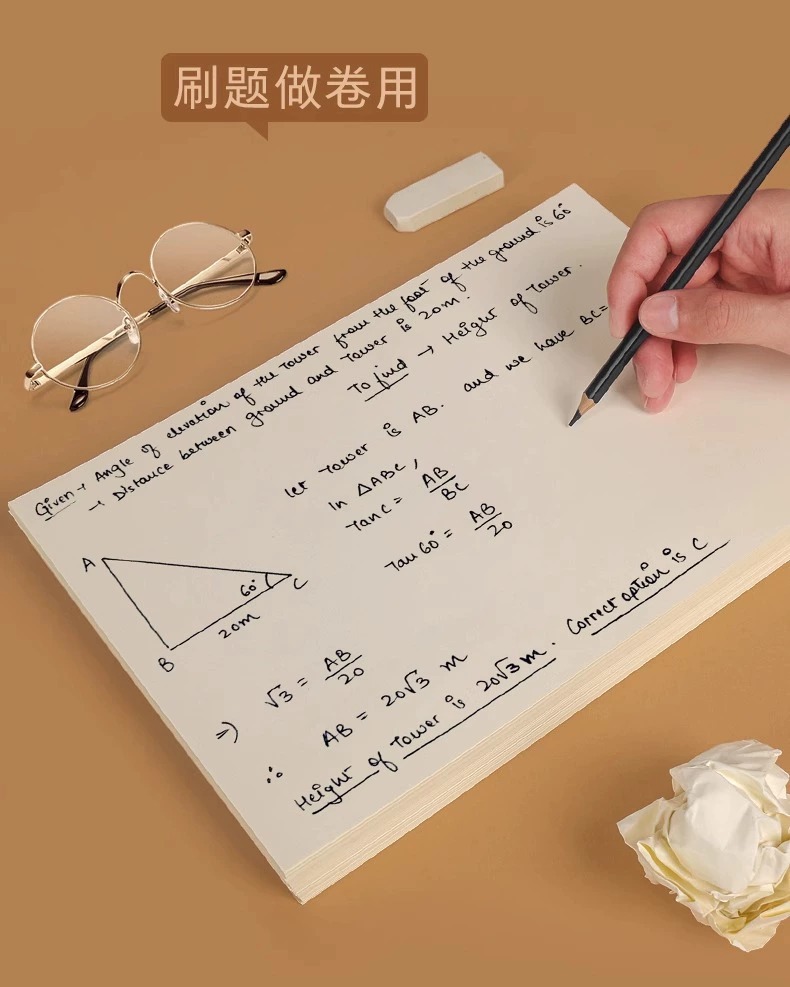 刷题做卷用
Given → Angle of elevation of the Tower from the foot of the ground is 60°
→ Distance between ground and Tower is 20m.
To find → Height of Tower.
let Tower is AB. and we have BC=
In △ABC,
TanC = AB/BC
Tan 60° = AB/20
A
60°
C
20m
B
⇒) √3 = AB/20
AB = 20√3 m
∴ Height of Tower is 20√3 m. Correct option is C